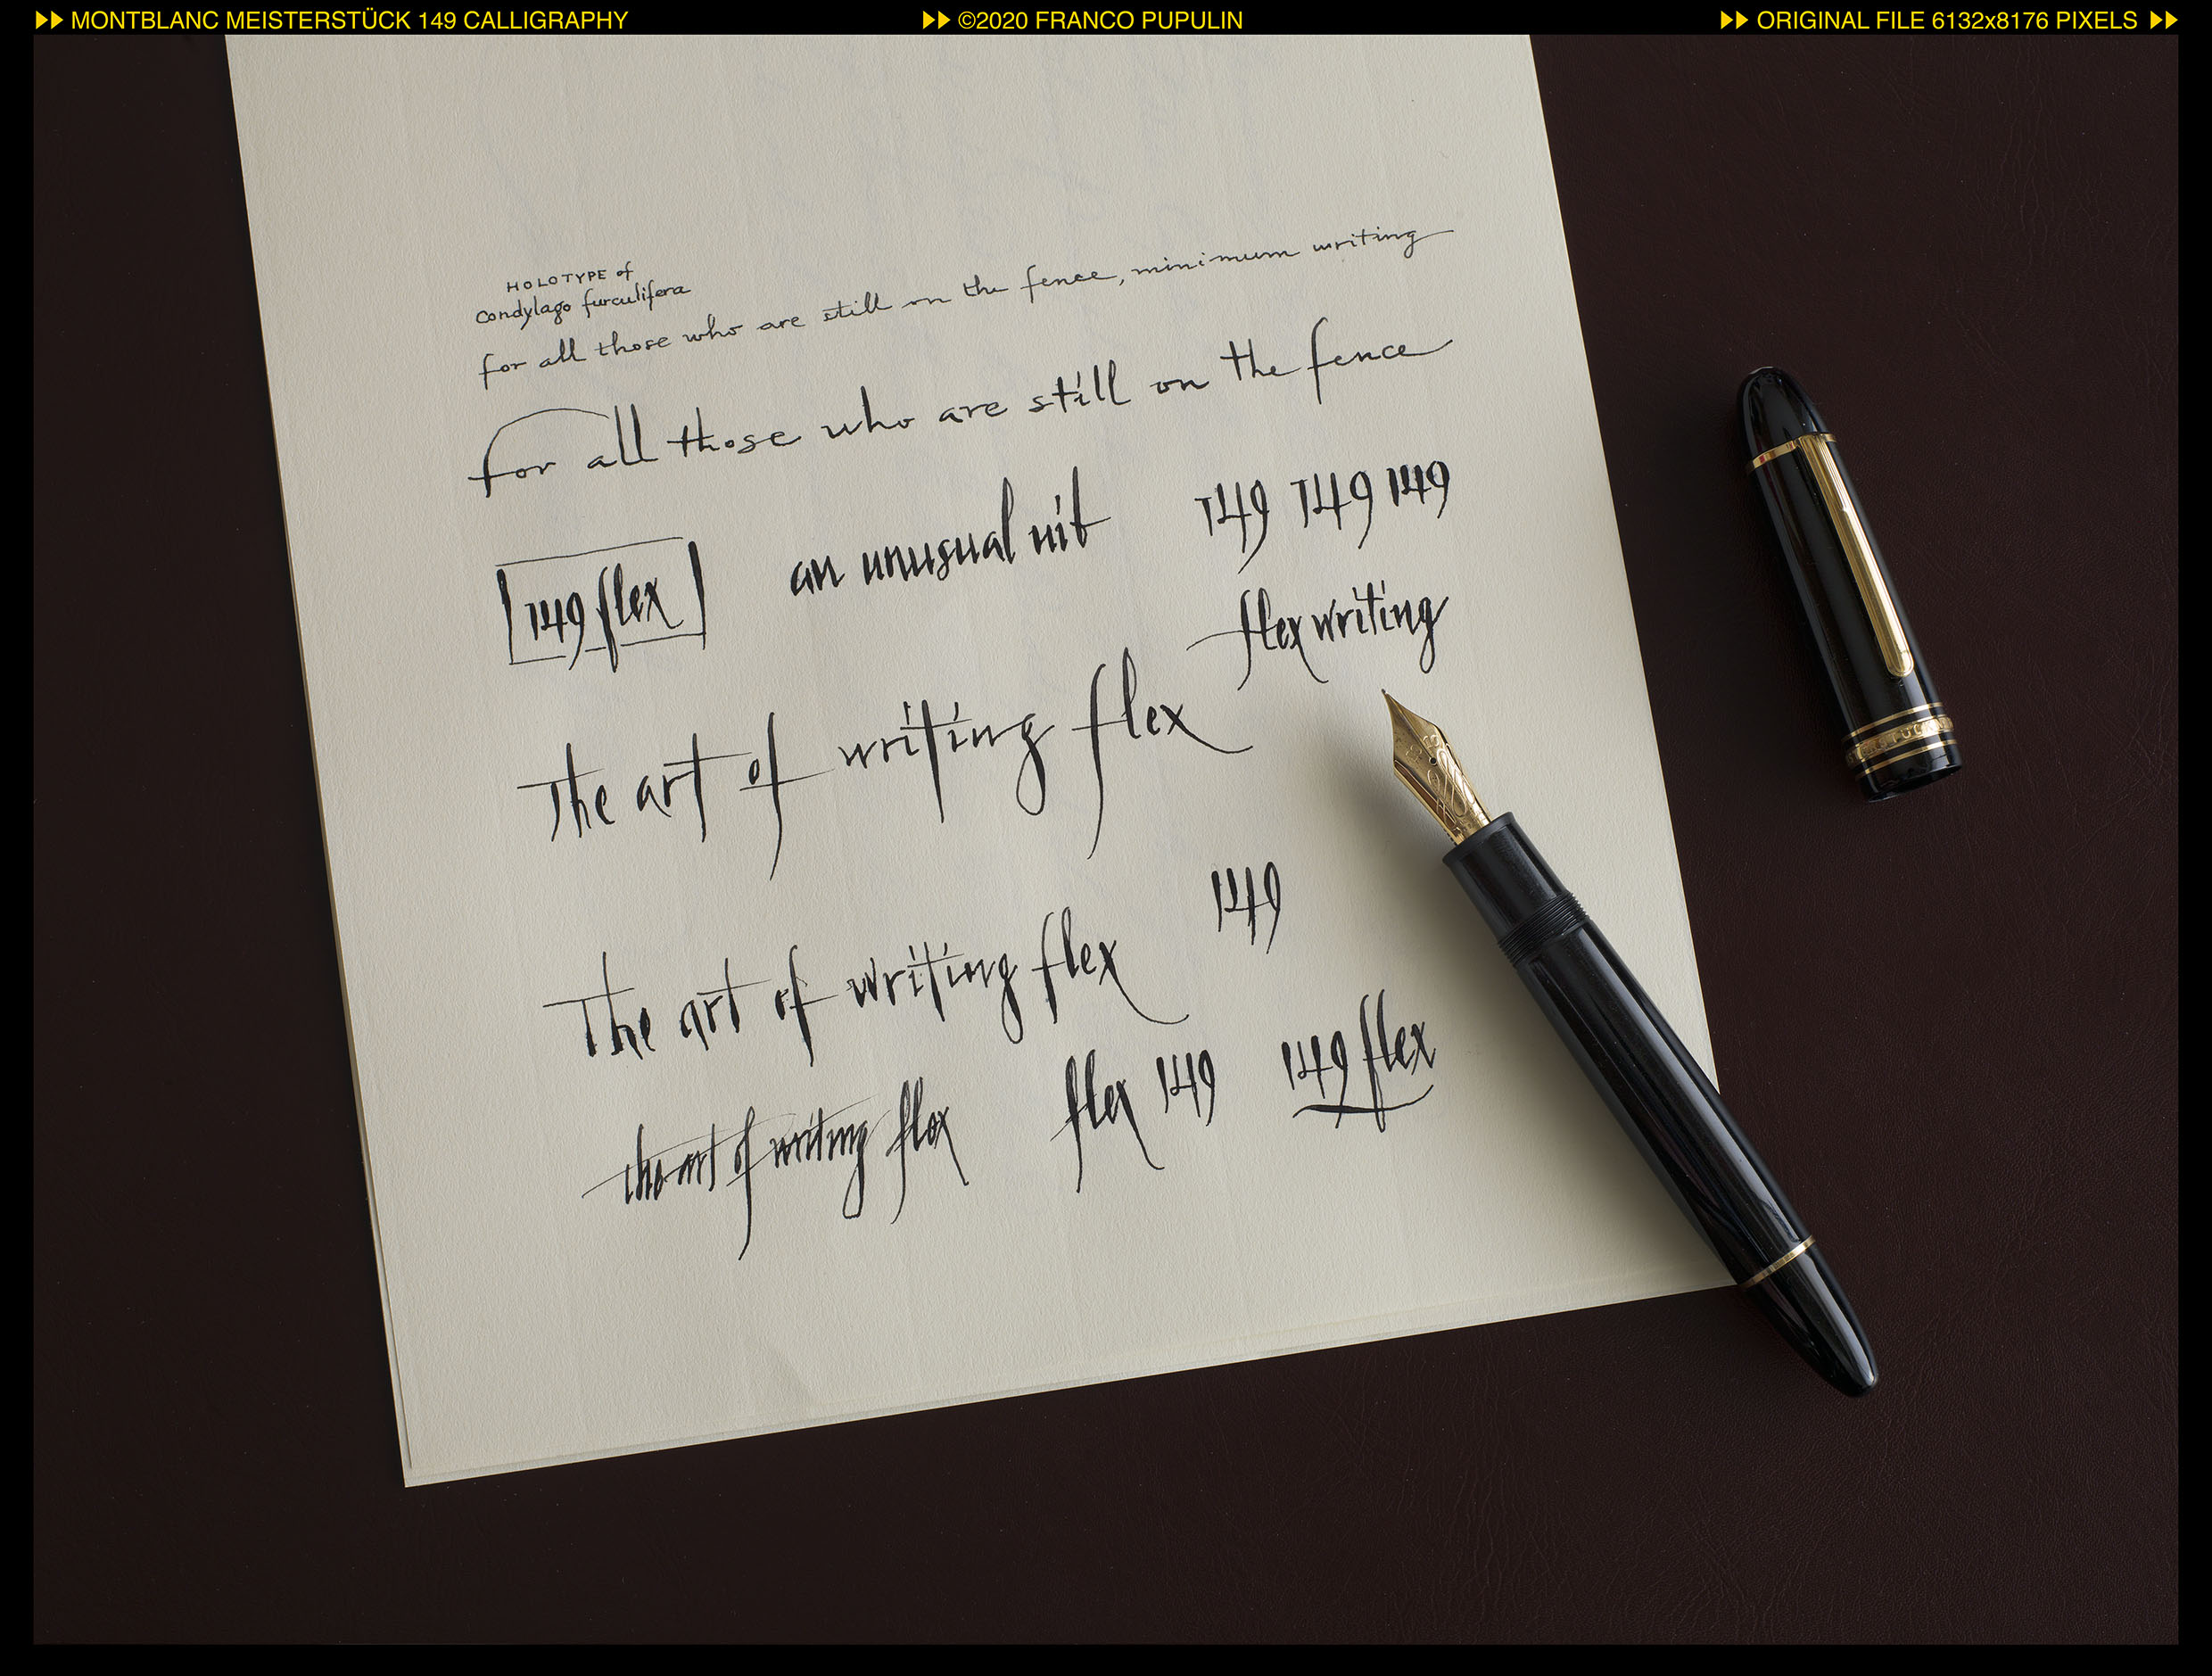 MONTBLANC MEISTERSTÜCK 149 CALLIGRAPHY
©2020 FRANCO PUPULIN
ORIGINAL FILE 6132x8176 PIXELS
HOLOTYPE of
Condylago furculifera
for all those who are still on the fence, minimum writing
for all those who are still on the fence
149 flex
an unusual nib
149 149 149
flex writing
The art of writing flex
149
The art of writing flex
the art of writing flex
flex 149
149 flex